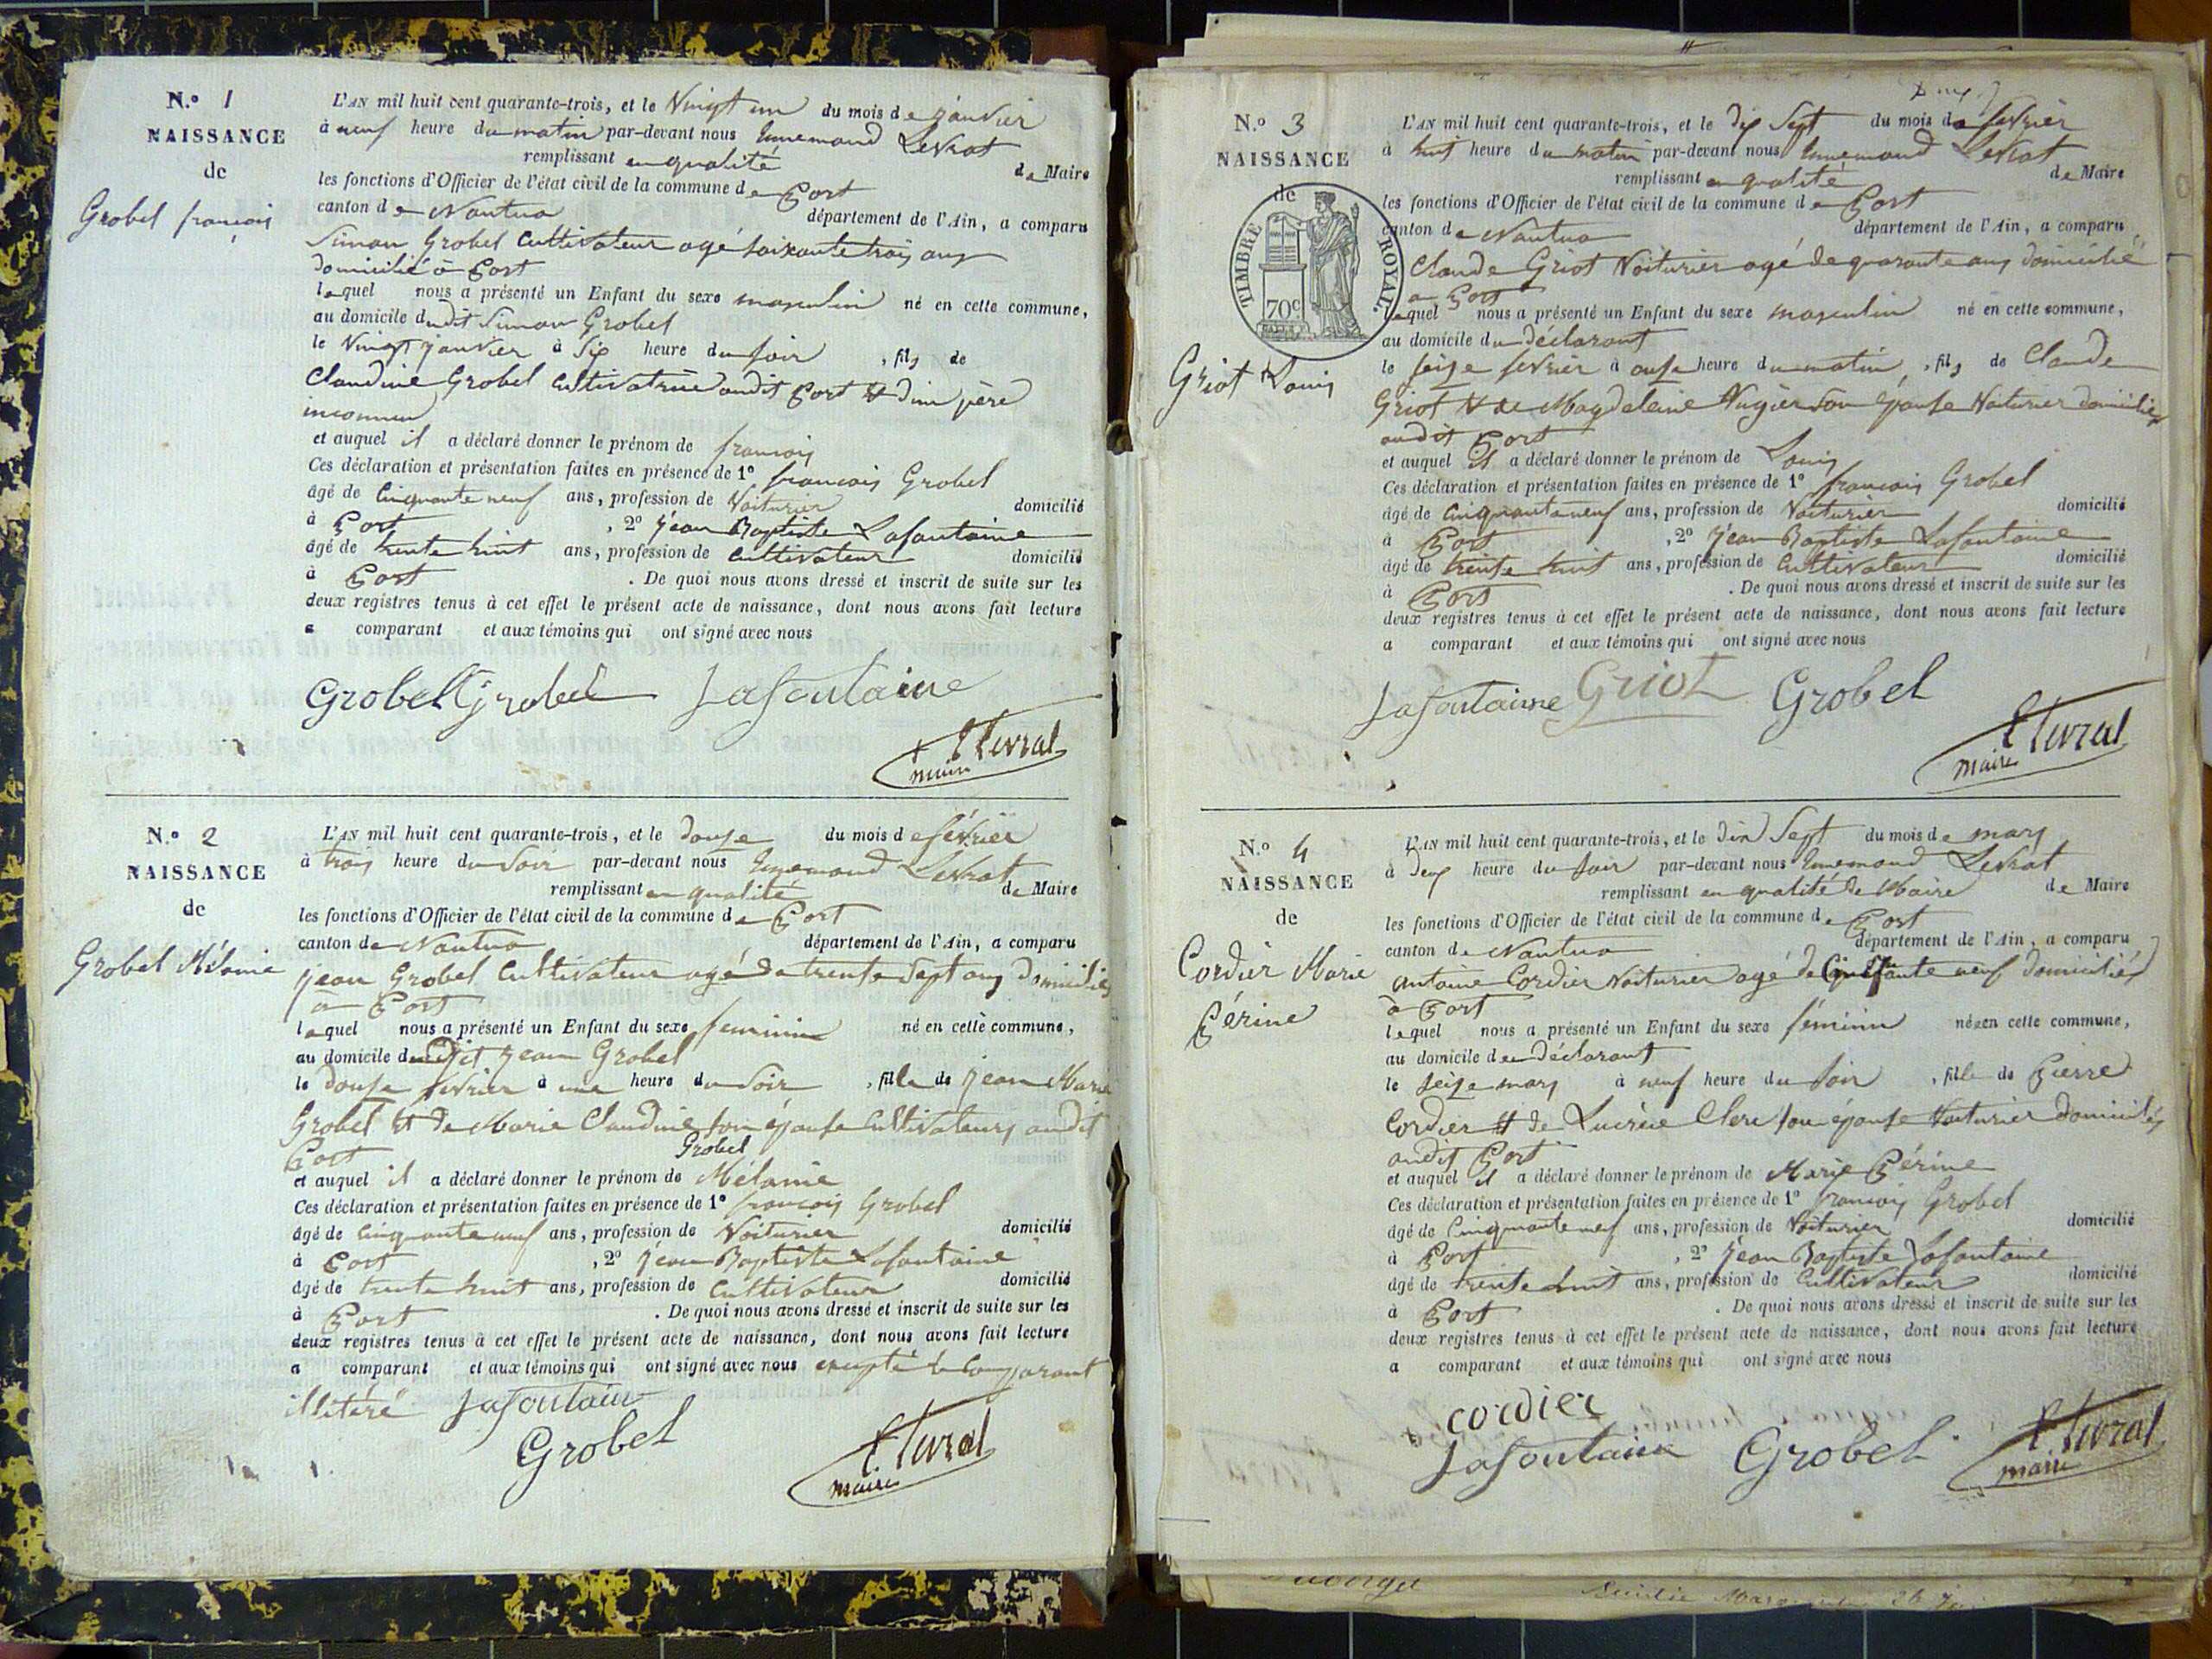 N.º 1
NAISSANCE
de
Grobel françois
L'AN mil huit cent quarante-trois, et le Vingt un du mois de janvier
à neuf heure du matin par-devant nous Ennemond Levrat
remplissant en qualité de Maire
les fonctions d'Officier de l'état civil de la commune de Port
canton de Nantua département de l'Ain, a comparu
Simon Grobel Cultivateur agé soixante trois ans
domicilié à Port
lequel nous a présenté un Enfant du sexe masculin né en cette commune,
au domicile dudit Simon Grobel
le Vingt janvier à Six heure du soir, fils de
Claudine Grobel Cultivatrice audit Port et d'un père
inconnu
et auquel il a déclaré donner le prénom de françois
Ces déclaration et présentation faites en présence de 1º françois Grobel
âgé de Cinquante neuf ans, profession de Voiturier domicilié
à Port, 2º jean Baptiste Lafontaine
âgé de trente huit ans, profession de Cultivateur domicilié
à Port. De quoi nous avons dressé et inscrit de suite sur les
deux registres tenus à cet effet le présent acte de naissance, dont nous avons fait lecture
a comparant et aux témoins qui ont signé avec nous
Grobel Grobel Lafontaine
E Levrat
maire
N.º 2
NAISSANCE
de
Grobel Mélanie
L'AN mil huit cent quarante-trois, et le douse du mois de février
à trois heure du Soir par-devant nous Ennemond Levrat
remplissant en qualité de Maire
les fonctions d'Officier de l'état civil de la commune de Port
canton de Nantua département de l'Ain, a comparu
jean Grobel Cultivateur agé de trente Sept ans domicilié
à Port
lequel nous a présenté un Enfant du sexe feminin né en cette commune,
au domicile dudit jean Grobel
le douse fevrier à une heure du Soir, fille de jean Marie
Grobel et de Marie Claudine son épouse Cultivateurs audit
Port Grobel
et auquel il a déclaré donner le prénom de Mélanie
Ces déclaration et présentation faites en présence de 1º françois Grobel
âgé de Cinquante neuf ans, profession de Voiturier domicilié
à Port, 2º jean Baptiste Lafontaine
âgé de trente huit ans, profession de Cultivateur domicilié
à Port. De quoi nous avons dressé et inscrit de suite sur les
deux registres tenus à cet effet le présent acte de naissance, dont nous avons fait lecture
a comparant et aux témoins qui ont signé avec nous excepté le Comparant
illitéré Lafontaine
Grobel
E Levrat
maire
N.º 3
NAISSANCE
de
TIMBRE ROYAL
70c
Griot Louis
L'AN mil huit cent quarante-trois, et le dix Sept du mois de fevrier
à huit heure du matin par-devant nous Ennemond Levrat
remplissant en qualité de Maire
les fonctions d'Officier de l'état civil de la commune de Port
canton de Nantua département de l'Ain, a comparu
Claude Griot Voiturier agé de quarante ans domicilié
a Port
lequel nous a présenté un Enfant du sexe masculin né en cette commune,
au domicile du déclarant
le seize fevrier à onse heure du matin, fils de Claude
Griot et de Magdeleine Nugier son épouse Voiturier domiciliés
audit Port
et auquel il a déclaré donner le prénom de Louis
Ces déclaration et présentation faites en présence de 1º françois Grobel
âgé de Cinquante neuf ans, profession de Voiturier domicilié
à Port, 2º jean Baptiste Lafontaine
âgé de trente huit ans, profession de Cultivateur domicilié
à Port. De quoi nous avons dressé et inscrit de suite sur les
deux registres tenus à cet effet le présent acte de naissance, dont nous avons fait lecture
a comparant et aux témoins qui ont signé avec nous
Lafontaine Griot Grobel
E Levrat
maire
N.º 4
NAISSANCE
de
Cordier Marie
Périne
L'AN mil huit cent quarante-trois, et le dix Sept du mois de mars
à deux heure du soir par-devant nous Ennemond Levrat
remplissant en qualité de Maire de Maire
les fonctions d'Officier de l'état civil de la commune de Port
canton de Nantua département de l'Ain, a comparu
antoine Cordier Voiturier agé de Cinquante neuf domicilié
à Port
lequel nous a présenté un Enfant du sexe féminin né en cette commune,
au domicile du déclarant
le seize mars à neuf heure du soir, fille de Pierre
Cordier et de Lucrèce Clerc son épouse Voiturier domiciliés
audit Port
et auquel il a déclaré donner le prénom de Marie Périne
Ces déclaration et présentation faites en présence de 1º françois Grobel
âgé de Cinquante neuf ans, profession de Voiturier domicilié
à Port, 2º jean Baptiste Lafontaine
âgé de trente huit ans, profession de Cultivateur domicilié
à Port. De quoi nous avons dressé et inscrit de suite sur les
deux registres tenus à cet effet le présent acte de naissance, dont nous avons fait lecture
a comparant et aux témoins qui ont signé avec nous
cordier
Lafontaine Grobel
E. Levrat
maire